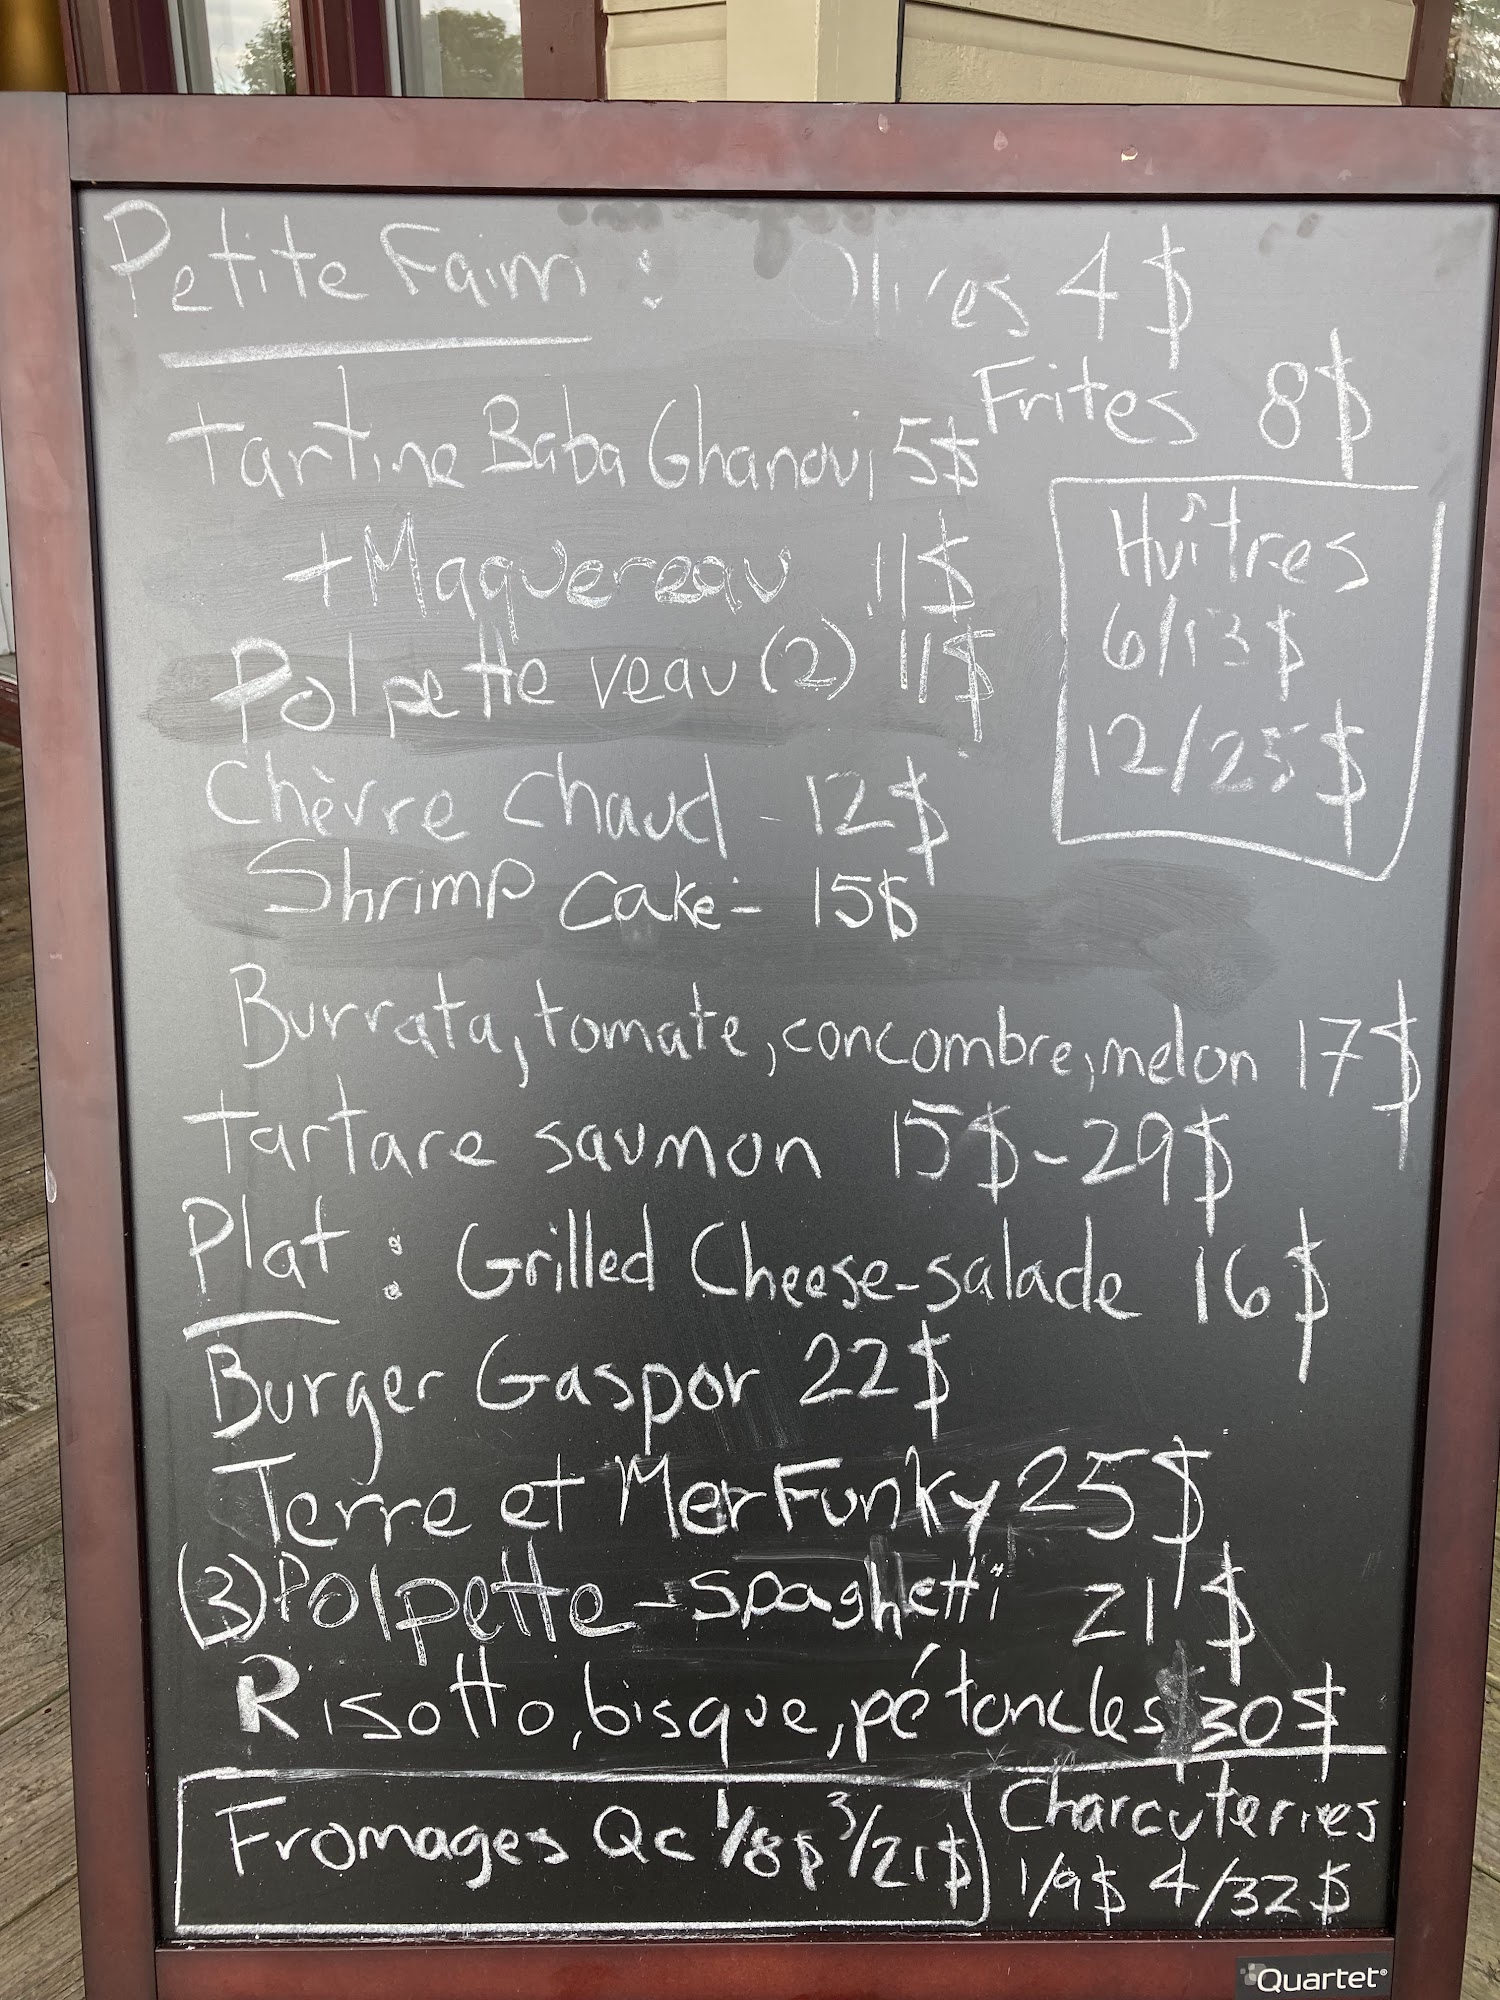 Petite Faim : Olives 4$
Frites 8$
Tartine Baba Ghanouj 5$
+ Maquereau 11$
Huîtres
6/13$
12/25$
Polpette veau (2) 11$
Chèvre chaud - 12$
Shrimp cake - 15$
Burrata, tomate, concombre, melon 17$
Tartare saumon 15$ - 29$
Plat : Grilled Cheese - salade 16$
Burger Gaspor 22$
Terre et Mer Funky 25$
(3) Polpette - spaghetti 21$
Risotto, bisque, pétoncles 30$
Fromages Qc 1/8$ 3/21$
Charcuteries
1/9$ 4/32$
Quartet®